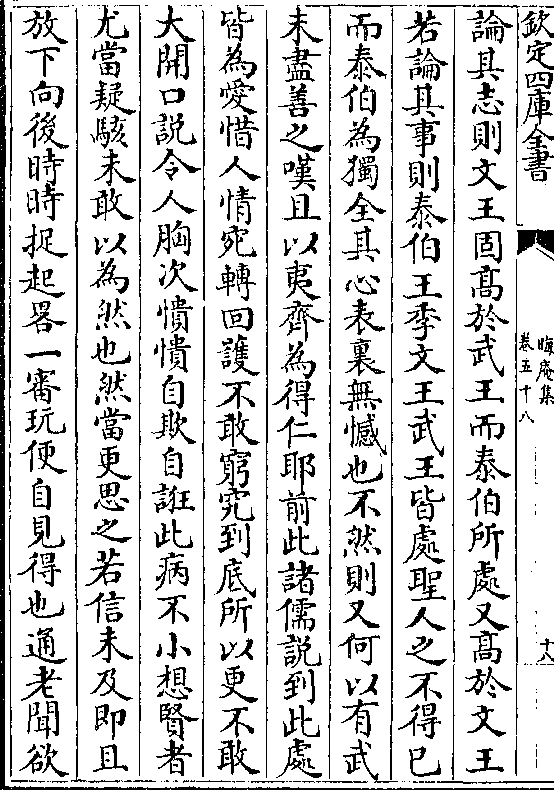 欽定四庫全書
晦庵集
卷五十八
十八
論其志則文王固髙於武王而泰伯所處又髙於文王
若論其事則泰伯王季文王武王皆處聖人之不得已
而泰伯為獨全其心表裏無憾也不然則又何以有武
未盡善之嘆且以夷齊為得仁耶前此諸儒説到此處
皆為愛惜人情宛轉回䕶不敢窮究到底所以更不敢
大開口説令人胸次憒憒自欺自誑此病不小想賢者
尤當疑駭未敢以為然也然當更思之若信未及即且
放下向後時時捉起畧一審玩便自見得也通老聞欲